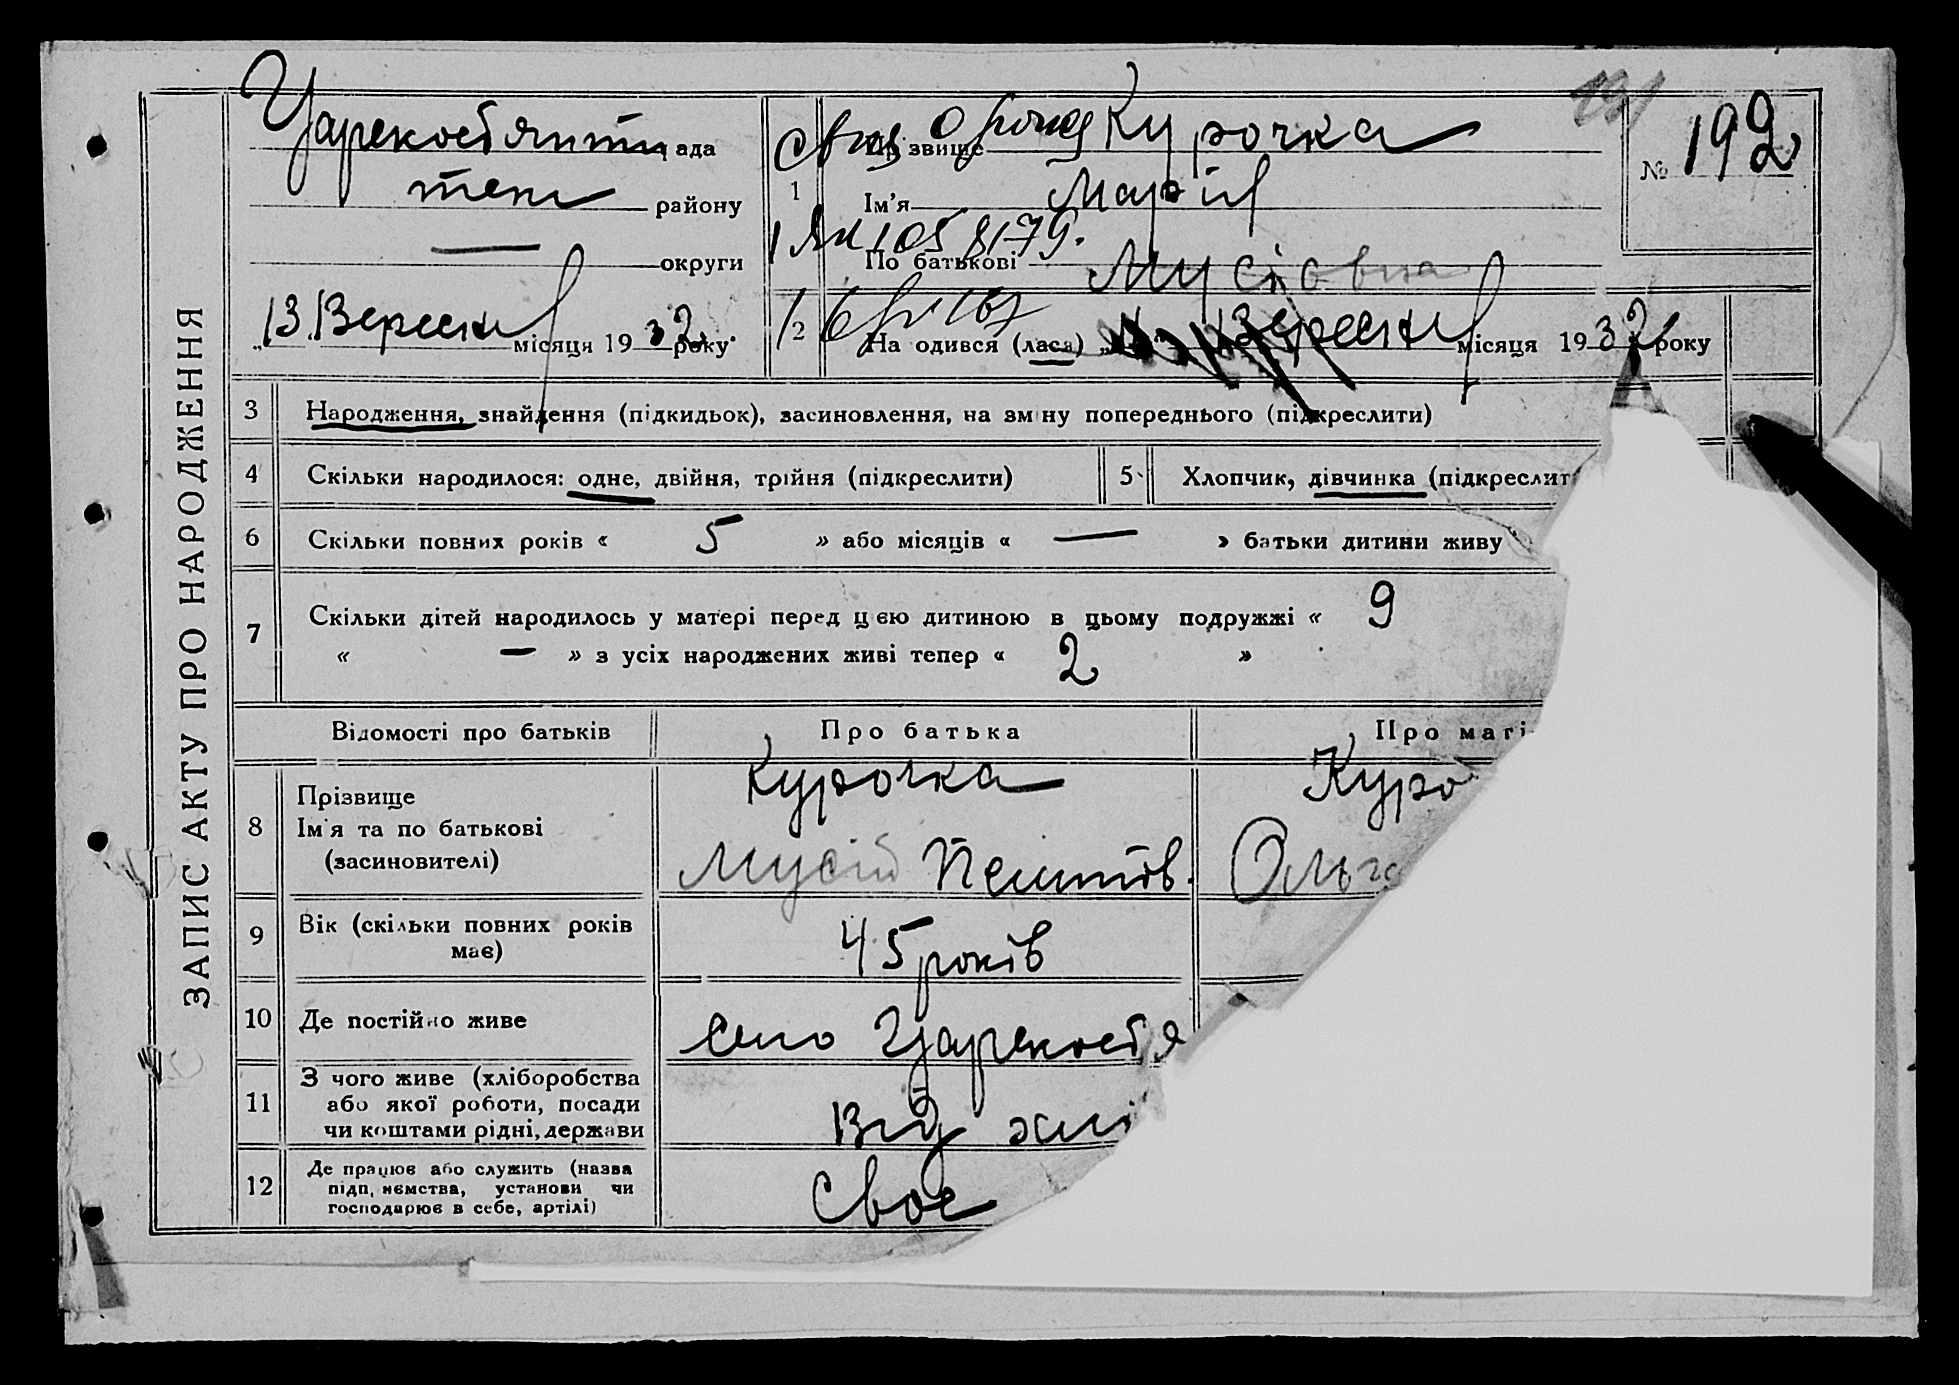 ЗАПИС АКТУ ПРО НАРОДЖЕННЯ
ада
району
округи
13 Вересня місяця 1932 року
191
№ 192
1
Прізвище Курочка
Ім'я Марія
По батькові Мусіовна
2
На одився (лася) Вересня місяця 1932 року
3 Народження, знайдення (підкидьок), засиновлення, на зміну попереднього (підкреслити)
4 Скільки народилося: одне, двійня, трійня (підкреслити)
5 Хлопчик, дівчинка (підкреслит
6 Скільки повних років « 5 » або місяців « — » батьки дитини живу
7 Скільки дітей народилось у матері перед цією дитиною в цьому подружжі « 9
« — » з усіх народжених живі тепер « 2 »
Відомості про батьків Про батька Про маті
8 Прізвище
Ім'я та по батькові
(засиновителі)
Курочка
Мусій
Куро
Ольга
9 Вік (скільки повних років
має)
45 років
10 Де постійно живе
село
11 З чого живе (хліборобства
або якої роботи, посади
чи коштами рідні, держави
Від хлі
12 Де працює або служить (назва
підприємства, установи чи
господарює в себе, артілі)
Своє